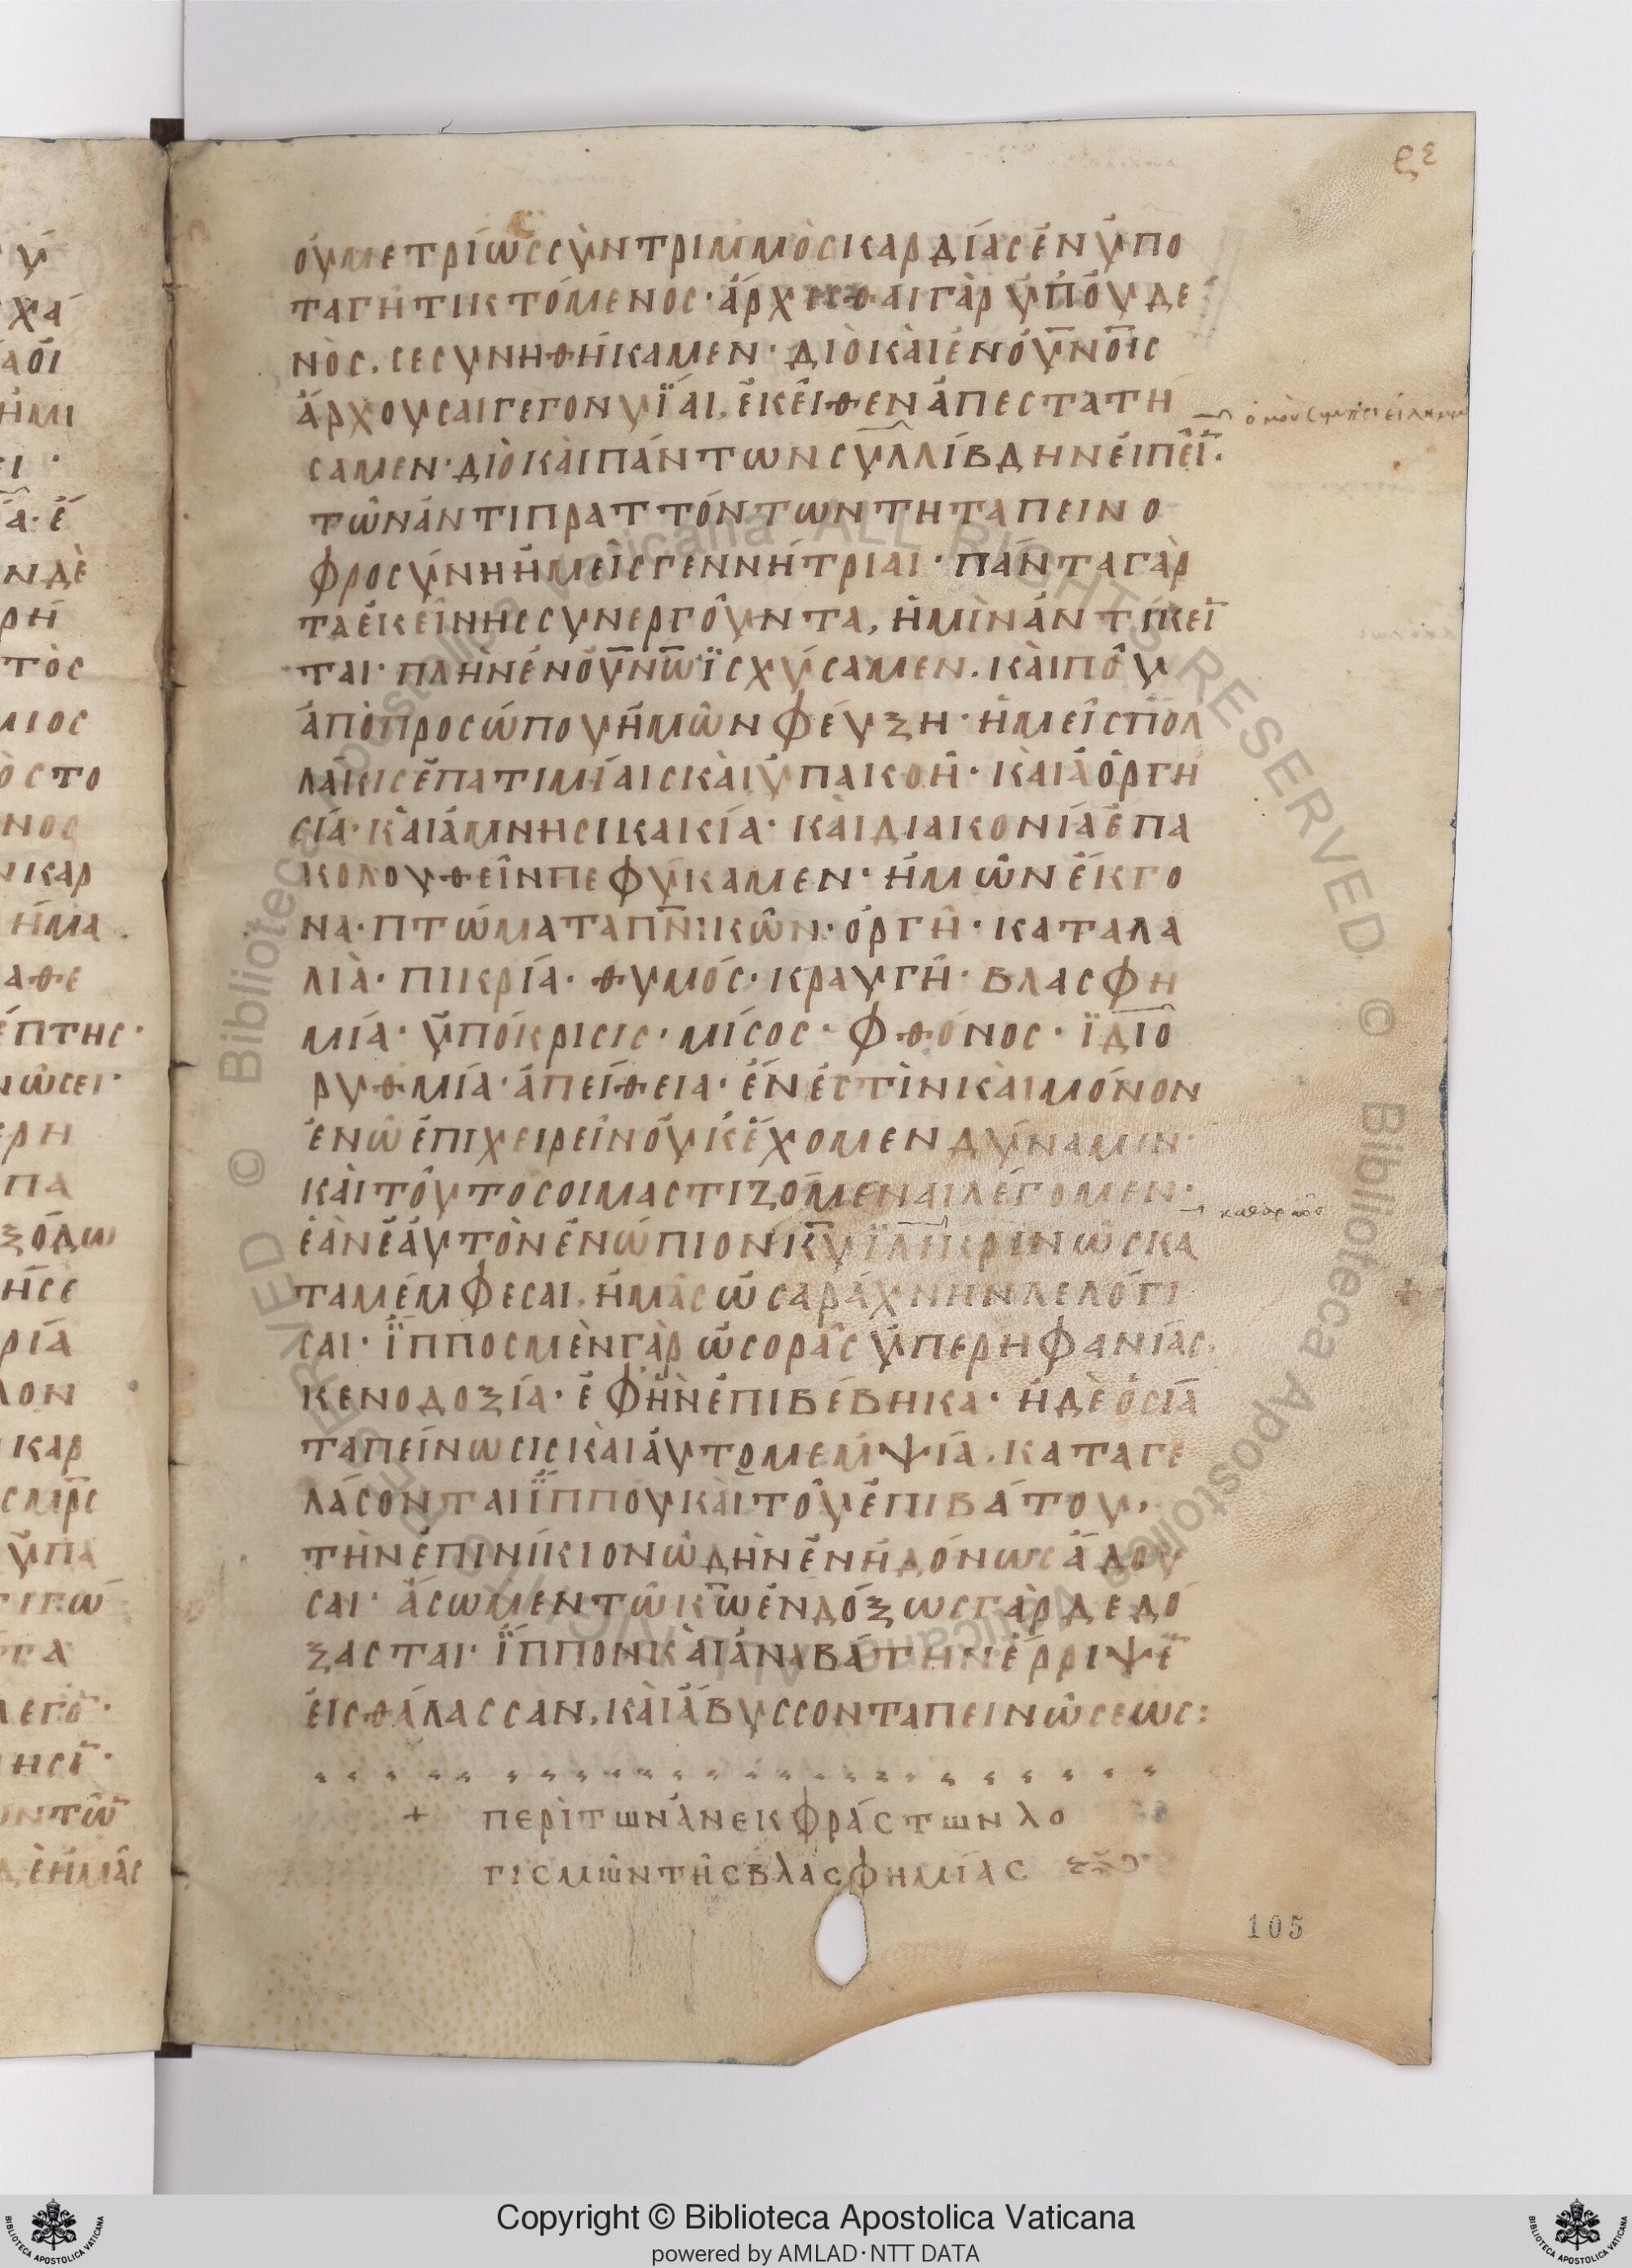 ϟε
ὀυμετρίωςσὺντριμμὸσικαρδίασἐνὑπο
ταγῆτικτόμενος· ἄρχεσθαιγὰρὑπ᾽ὀυδε
νὸς. σεσυνηθήκαμεν· διὸκὰιἐνὀυ̅νο̅ις
ἄρχουσαιγεγονυῖαι, ἐκεῖθενἀπεστατή
σαμεν· διὸκὰιπάντωνσυλλίβδηνἐιπεῖ̅.
τῶνἀντιπραττόντωντηταπεινο
φροσύνηἡμεῖςγεννήτριαι· πάνταγὰρ
ταἐκείνηςσυνεργοῦντα, ἡμὶνἀντίκει̅
ται· πλὴνἐνὀυ̅νω̅ϊσχύσαμεν. κὰιποῦ
ἀπὸπροσώπουἡμῶνφεύξη· ἡμεῖςπολ
λάκιςἐπατιμίαιςκὰιὑπαικοῆ· κὰιἀόργη
σία· κὰιἀμνησικακία· κὰιδιακονίαἐπα
κολουθεῖνπεφύκαμεν· ἡμῶνἔκγο
να· πτώματαπ̅ν̅ικῶν· ὀργὴ· καταλα
λιὰ· πικρία· θυμός· κραυγὴ· βλασφη
μία· ὑπόκρισις· μίσος· φθόνος· ϊδιο
ρυθμία· ἀπείθεια· ἕνἐστὶνκὰιμόνον
ἐνῶἐπιχειρεῖνὀυκἔχομενδύναμιν·
κὰιτοῦτοσοιμαστιζόμεναιλέγομεν·
ἐὰνἑαυτὸνἐνώπιονκ̅υ̅ϊλικρινῶςκα
ταμέμφεσαι, ἡμᾶςὡσαράχνηνλελόγι
σαι· ἵπποσμὲνγὰρὡσορᾶςὑπερηφανίας,
κενοδοξία· ἐφἣνἐπιβέβηκα· ἡδὲὁσία
ταπείνωσιςκὰιἀυτομεμψία. καταγε
λάσονταιἵππουκὰιτοῦἐπιβάτου,
τὴνἐπινίκιονὠδὴνἐνηδόνωςἄδου
σαι· ἄσωμεντῶκ̅ω̅ἐνδόξωςγὰρδεδό
ξασται· ἵππονκὰιἀναβάτηνἔρριψε̅
ἐιςθάλασσαν, κὰιἄβυσσονταπεινώσεως:
+ περὶτωνἀνεκφράστωνλο
γισμῶντῆςβλασφημίας
105
Copyright © Biblioteca Apostolica Vaticana
powered by AMLAD·NTT DATA